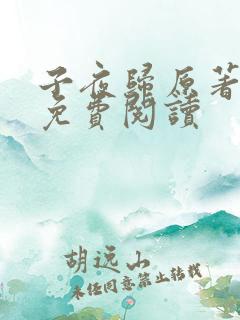 子夜歸原著
免費閱讀
胡远山
未经同意禁止转载